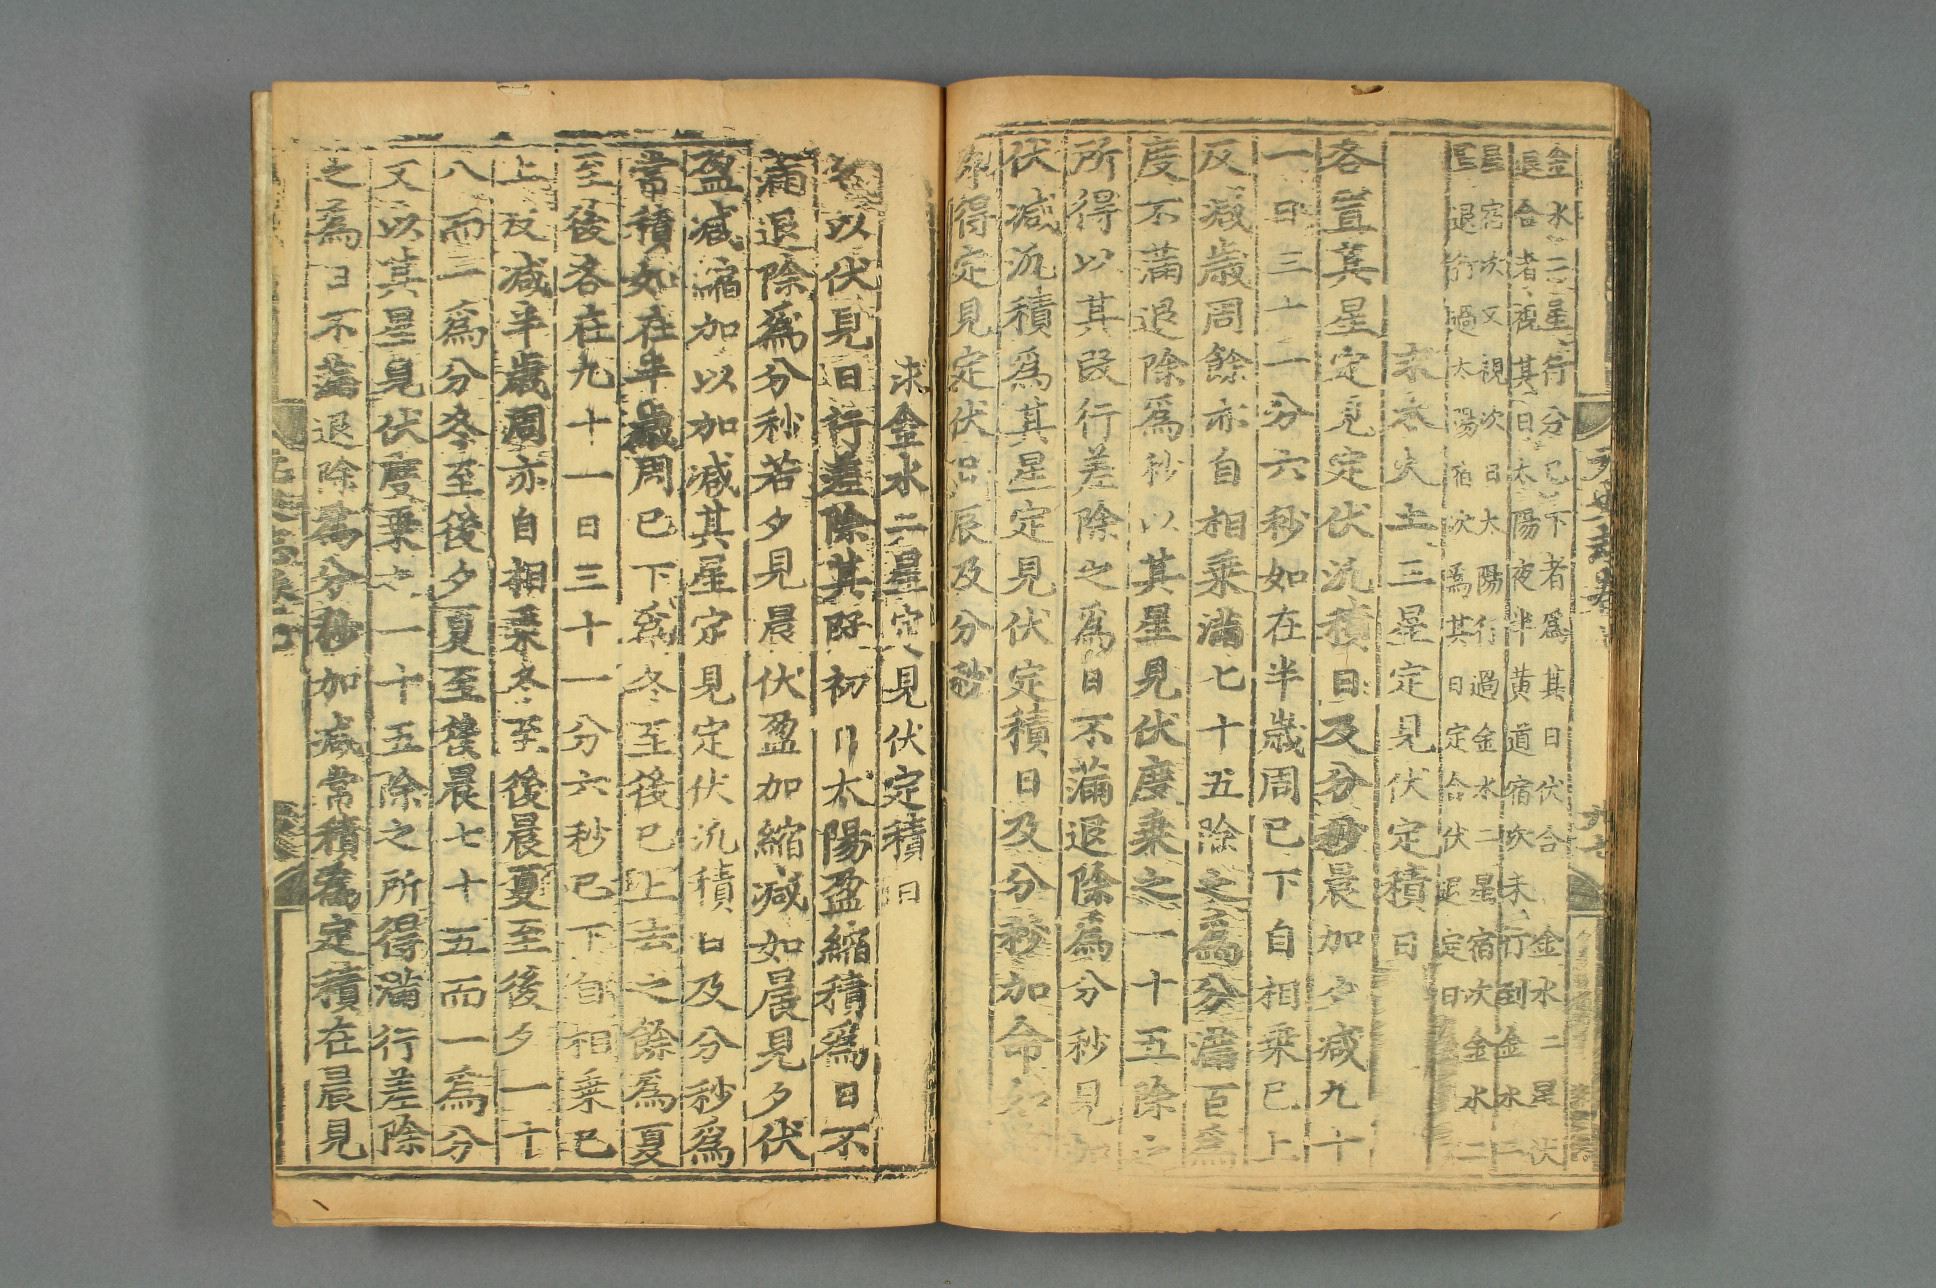 金水二星行分已下者爲其日伏合金水二星伏
退合者視其日太陽夜半黄道宿次未行到金水二
星宿次又視次日太陽行過金水二星宿次金水二
星退行過太陽宿次爲其日定合伏退定日
求木火土三星定見伏定積日
各置其星定見定伏汎積日及分秒晨加夕减九十
一日三十一分六秒如在半歲周已下自相乗已上
反减歲周餘亦自相乗滿七十五除之爲分滿百爲
度不滿退除爲秒以其星見伏度乗之一十五除之
所得以其段行差除之爲日不滿退除爲分秒見加
伏减汎積爲其星定見伏定積日及分秒加命如
來得定見定伏日辰及分秒
求金水二星定見伏定積日
各以伏見日行差除其段初日太陽盈縮積爲日不
滿退除爲分秒若夕見晨伏盈加縮减如晨見夕伏
盈减縮加以加减其星定見定伏汎積日及分秒爲
常積如在半歲周已下爲冬至後已上去之餘爲夏
至後各在九十一日三十一分六秒已下自相乗已
上反减半歲周亦自相乗冬至後晨夏至後夕一十
八而一爲分冬至後夕夏至後晨七十五而一爲分
又以其星見伏度乗之一十五除之所得滿行差除
之爲日不滿退除爲分秒加减常積爲定積在晨見